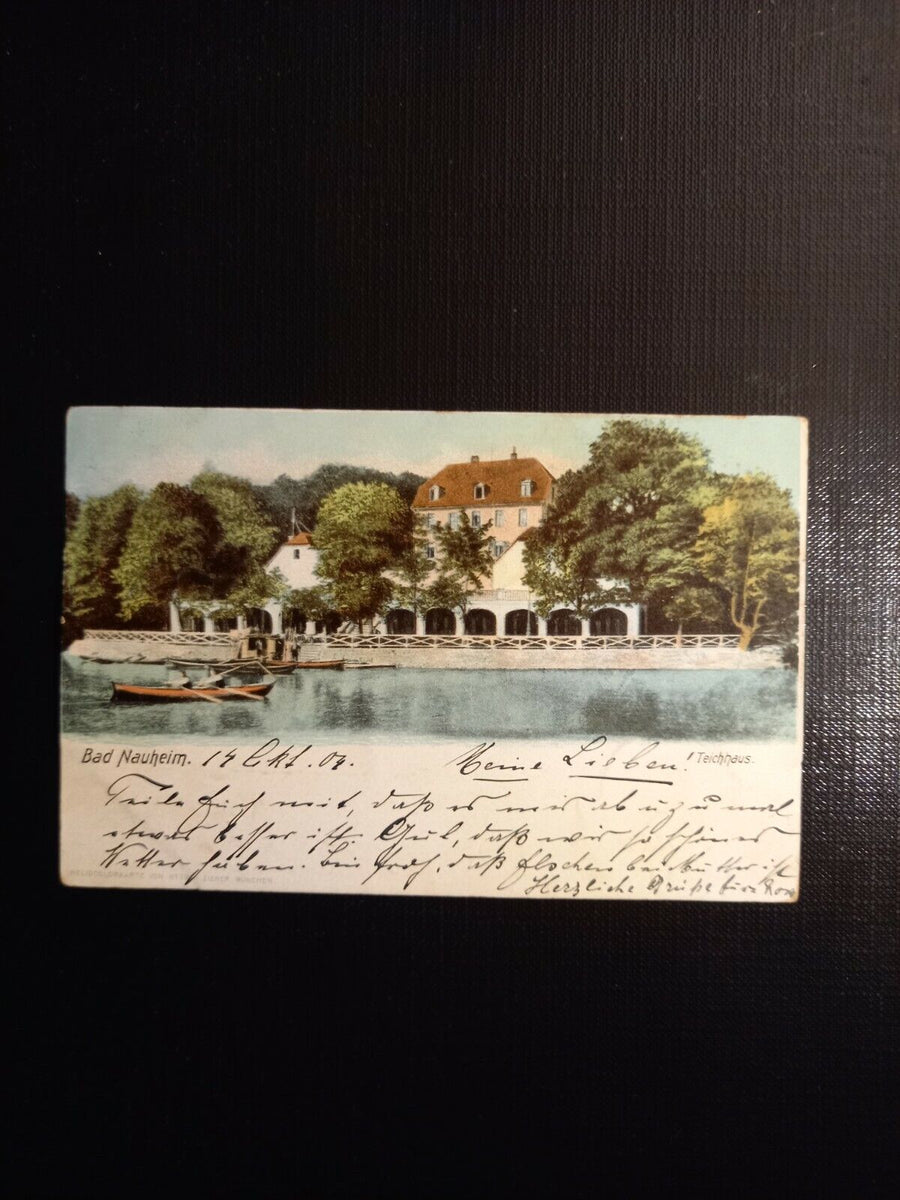 Bad Nauheim. 14 Okt. 04. Meine Lieben! Teichhaus.
Teile Euch mit, daß es mir ab u. zu mal
etwas besser ist. Gut, daß wir so schönes
Wetter haben. Bin froh, daß bei Mutter ist
HELIOCOLORKARTE VON OTTMAR ZIEHER, MÜNCHEN.
Herzliche Grüße